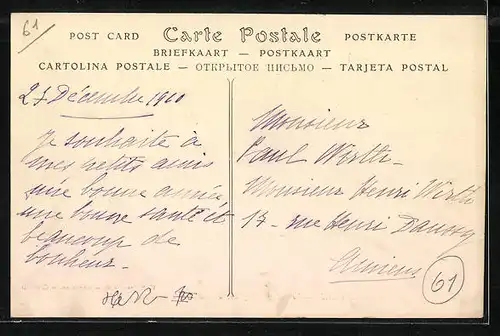 61
POST CARD Carte Postale POSTKARTE
BRIEFKAART — POSTKAART
CARTOLINA POSTALE — ОТКРЫТОЕ ПИСЬМО — TARJETA POSTAL
27 Décembre 1910
Je souhaite à
mes petits amis
une bonne année,
une bonne santé et
beaucoup de
bonheur.
Monsieur
Paul Wirth.
Monsieur Henri Wirth
17 - rue Henri Daussy
Amiens
61